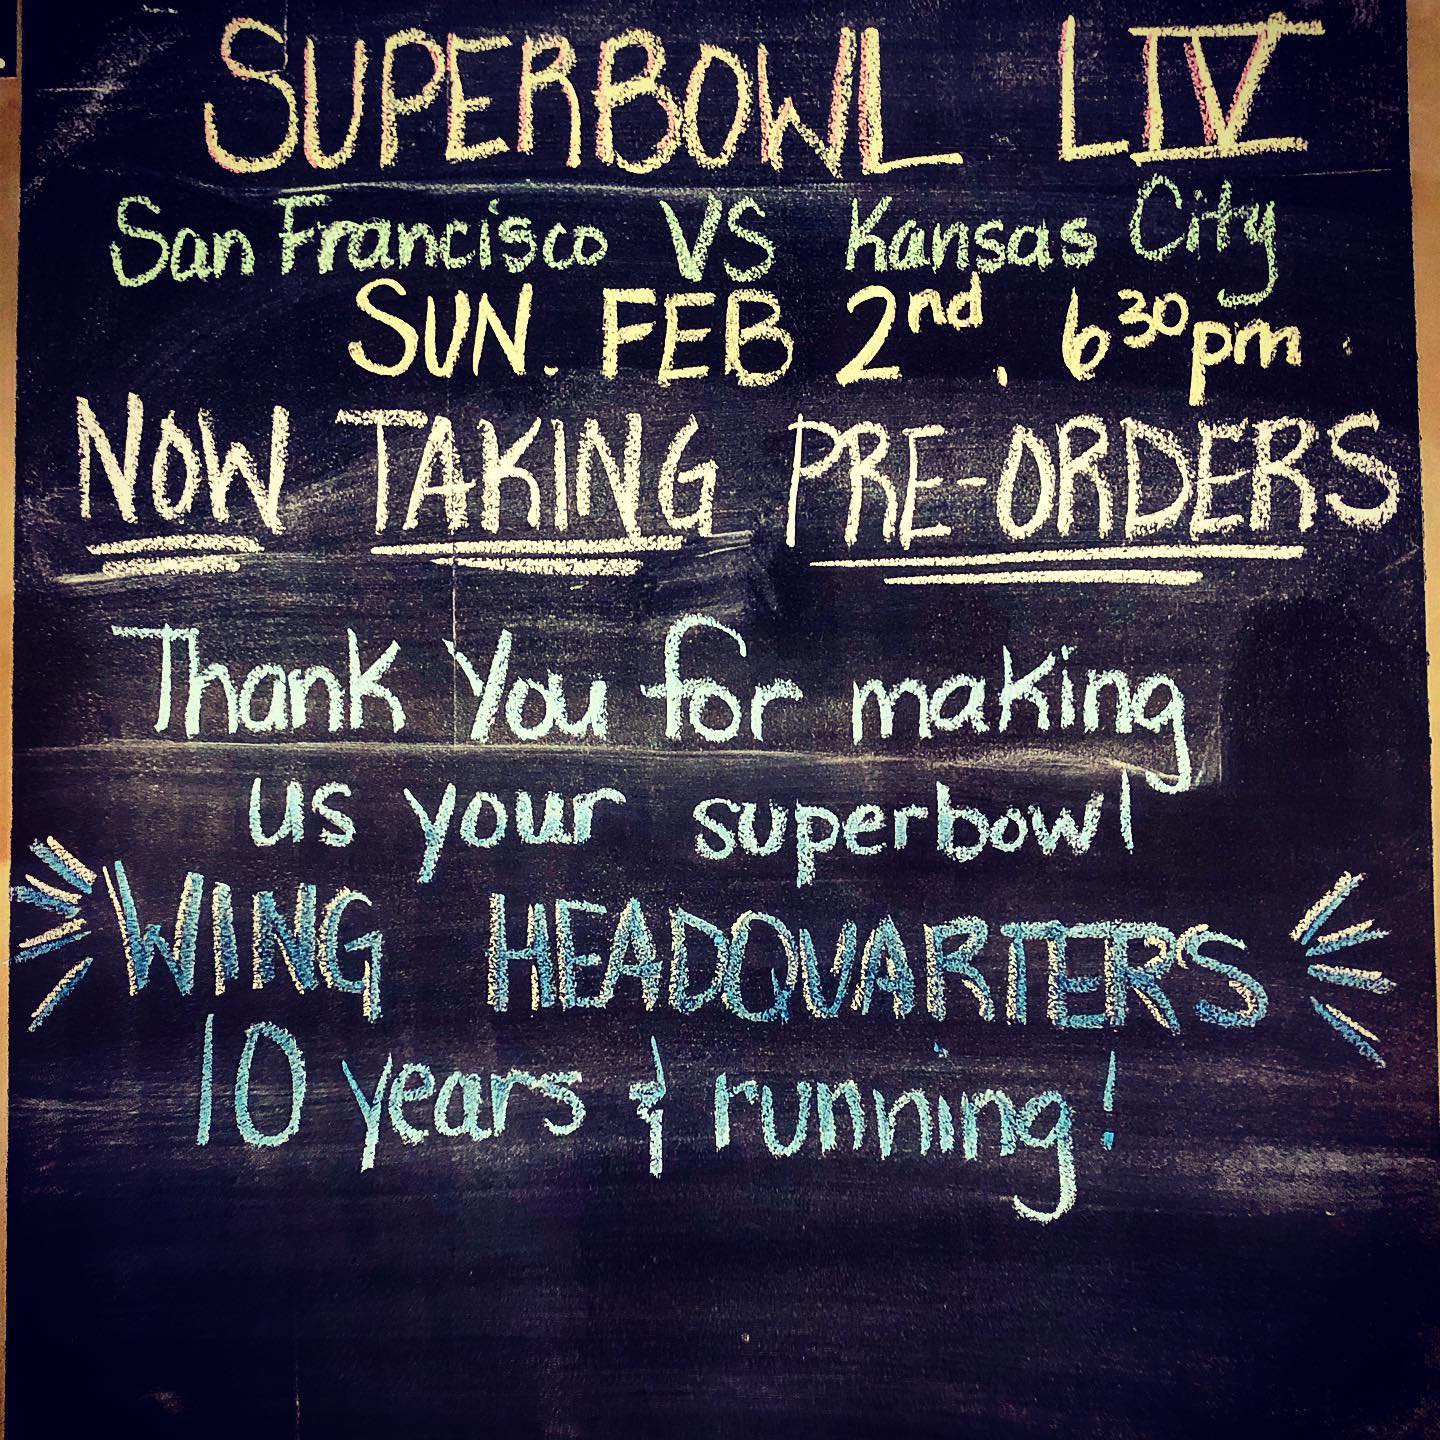 SUPERBOWL LIV
San Francisco VS Kansas City
SUN. FEB 2nd, 6 30 pm.
NOW TAKING PRE-ORDERS
Thank You for making
us your superbowl
WING HEADQUARTERS
10 years & running!